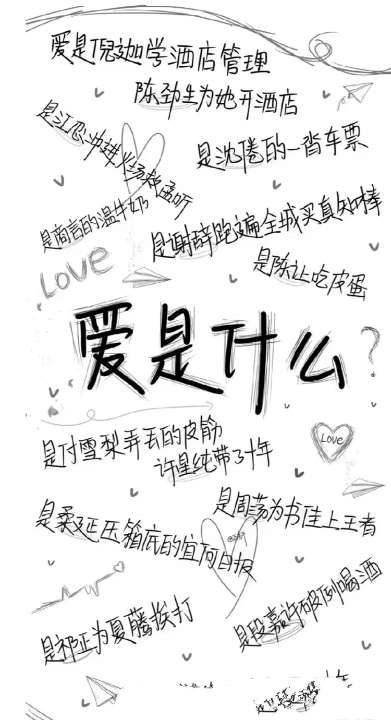 爱是倪迦学酒店管理
陈劲生为她开酒店
是江忍冲进火场救孟听
是沈倦的一沓车票
是商言的温牛奶
是谢辞跑遍全城买真知棒
LOVE
是陈让吃皮蛋
爱是什么?
是付雪梨弄丢的皮筋
许星纯带了十年
Love
是周荡为书佳上王者
是柔延压箱底的宜阿日报
是祁正为夏藤挨打
是段嘉许破例喝酒